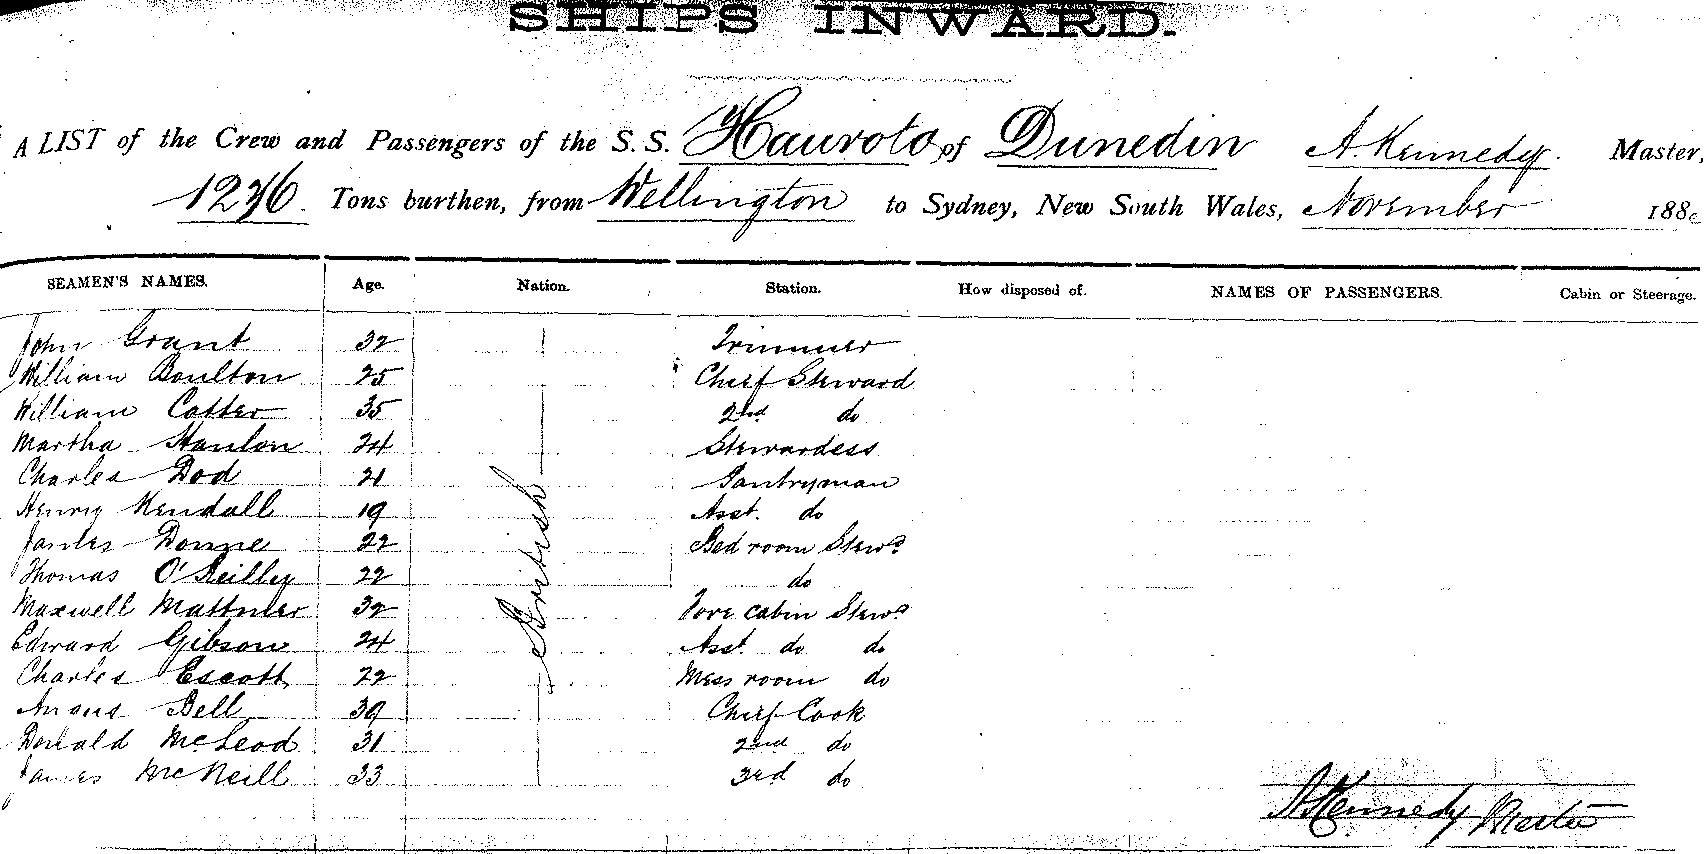 SHIPS INWARD.
A LIST of the Crew and Passengers of the S.S. Hauroto of Dunedin A. Kennedy. Master,
1276 Tons burthen, from Wellington to Sydney, New South Wales, November 188
SEAMEN'S NAMES. Age. Nation. Station. How disposed of. NAMES OF PASSENGERS. Cabin or Steerage.
John Grant 32 Trimmer
William Boulton 25 Chief Steward
William Cotter 35 2nd do
Martha Hanlon 24 Stewardess
Charles Dod 21 Pantryman
Henry Kendall 19 Asst. do
British
James Donne 22 Bed room Stewd
Thomas O'Reilly 22 do
Maxwell 32 Fore cabin Stewd
Edward Gibson 24 Asst. do do
Charles Escott 22 Mess room do
Angus Bell 39 Chief Cook
Donald McLeod 31 2nd do
James McNeill 33 3rd do
A Kennedy Master